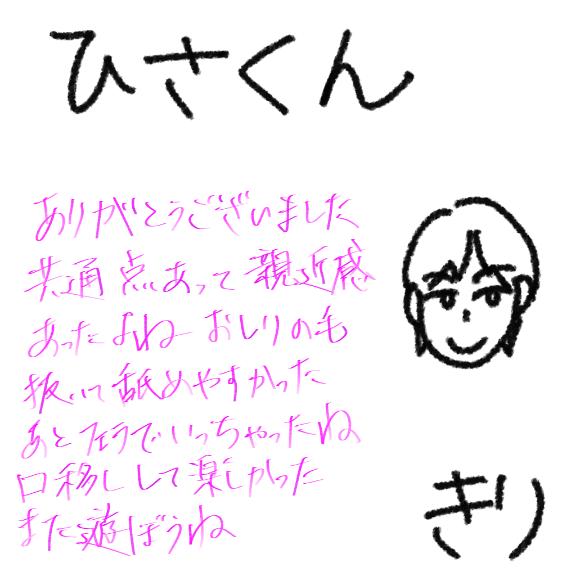 ひさくん
ありがとうございました
共通点あって親近感
あったよね おしりの毛
抜いて舐めやすかった
あとフェラでいっちゃったね
口移しして楽しかった
また遊ぼうね
きり